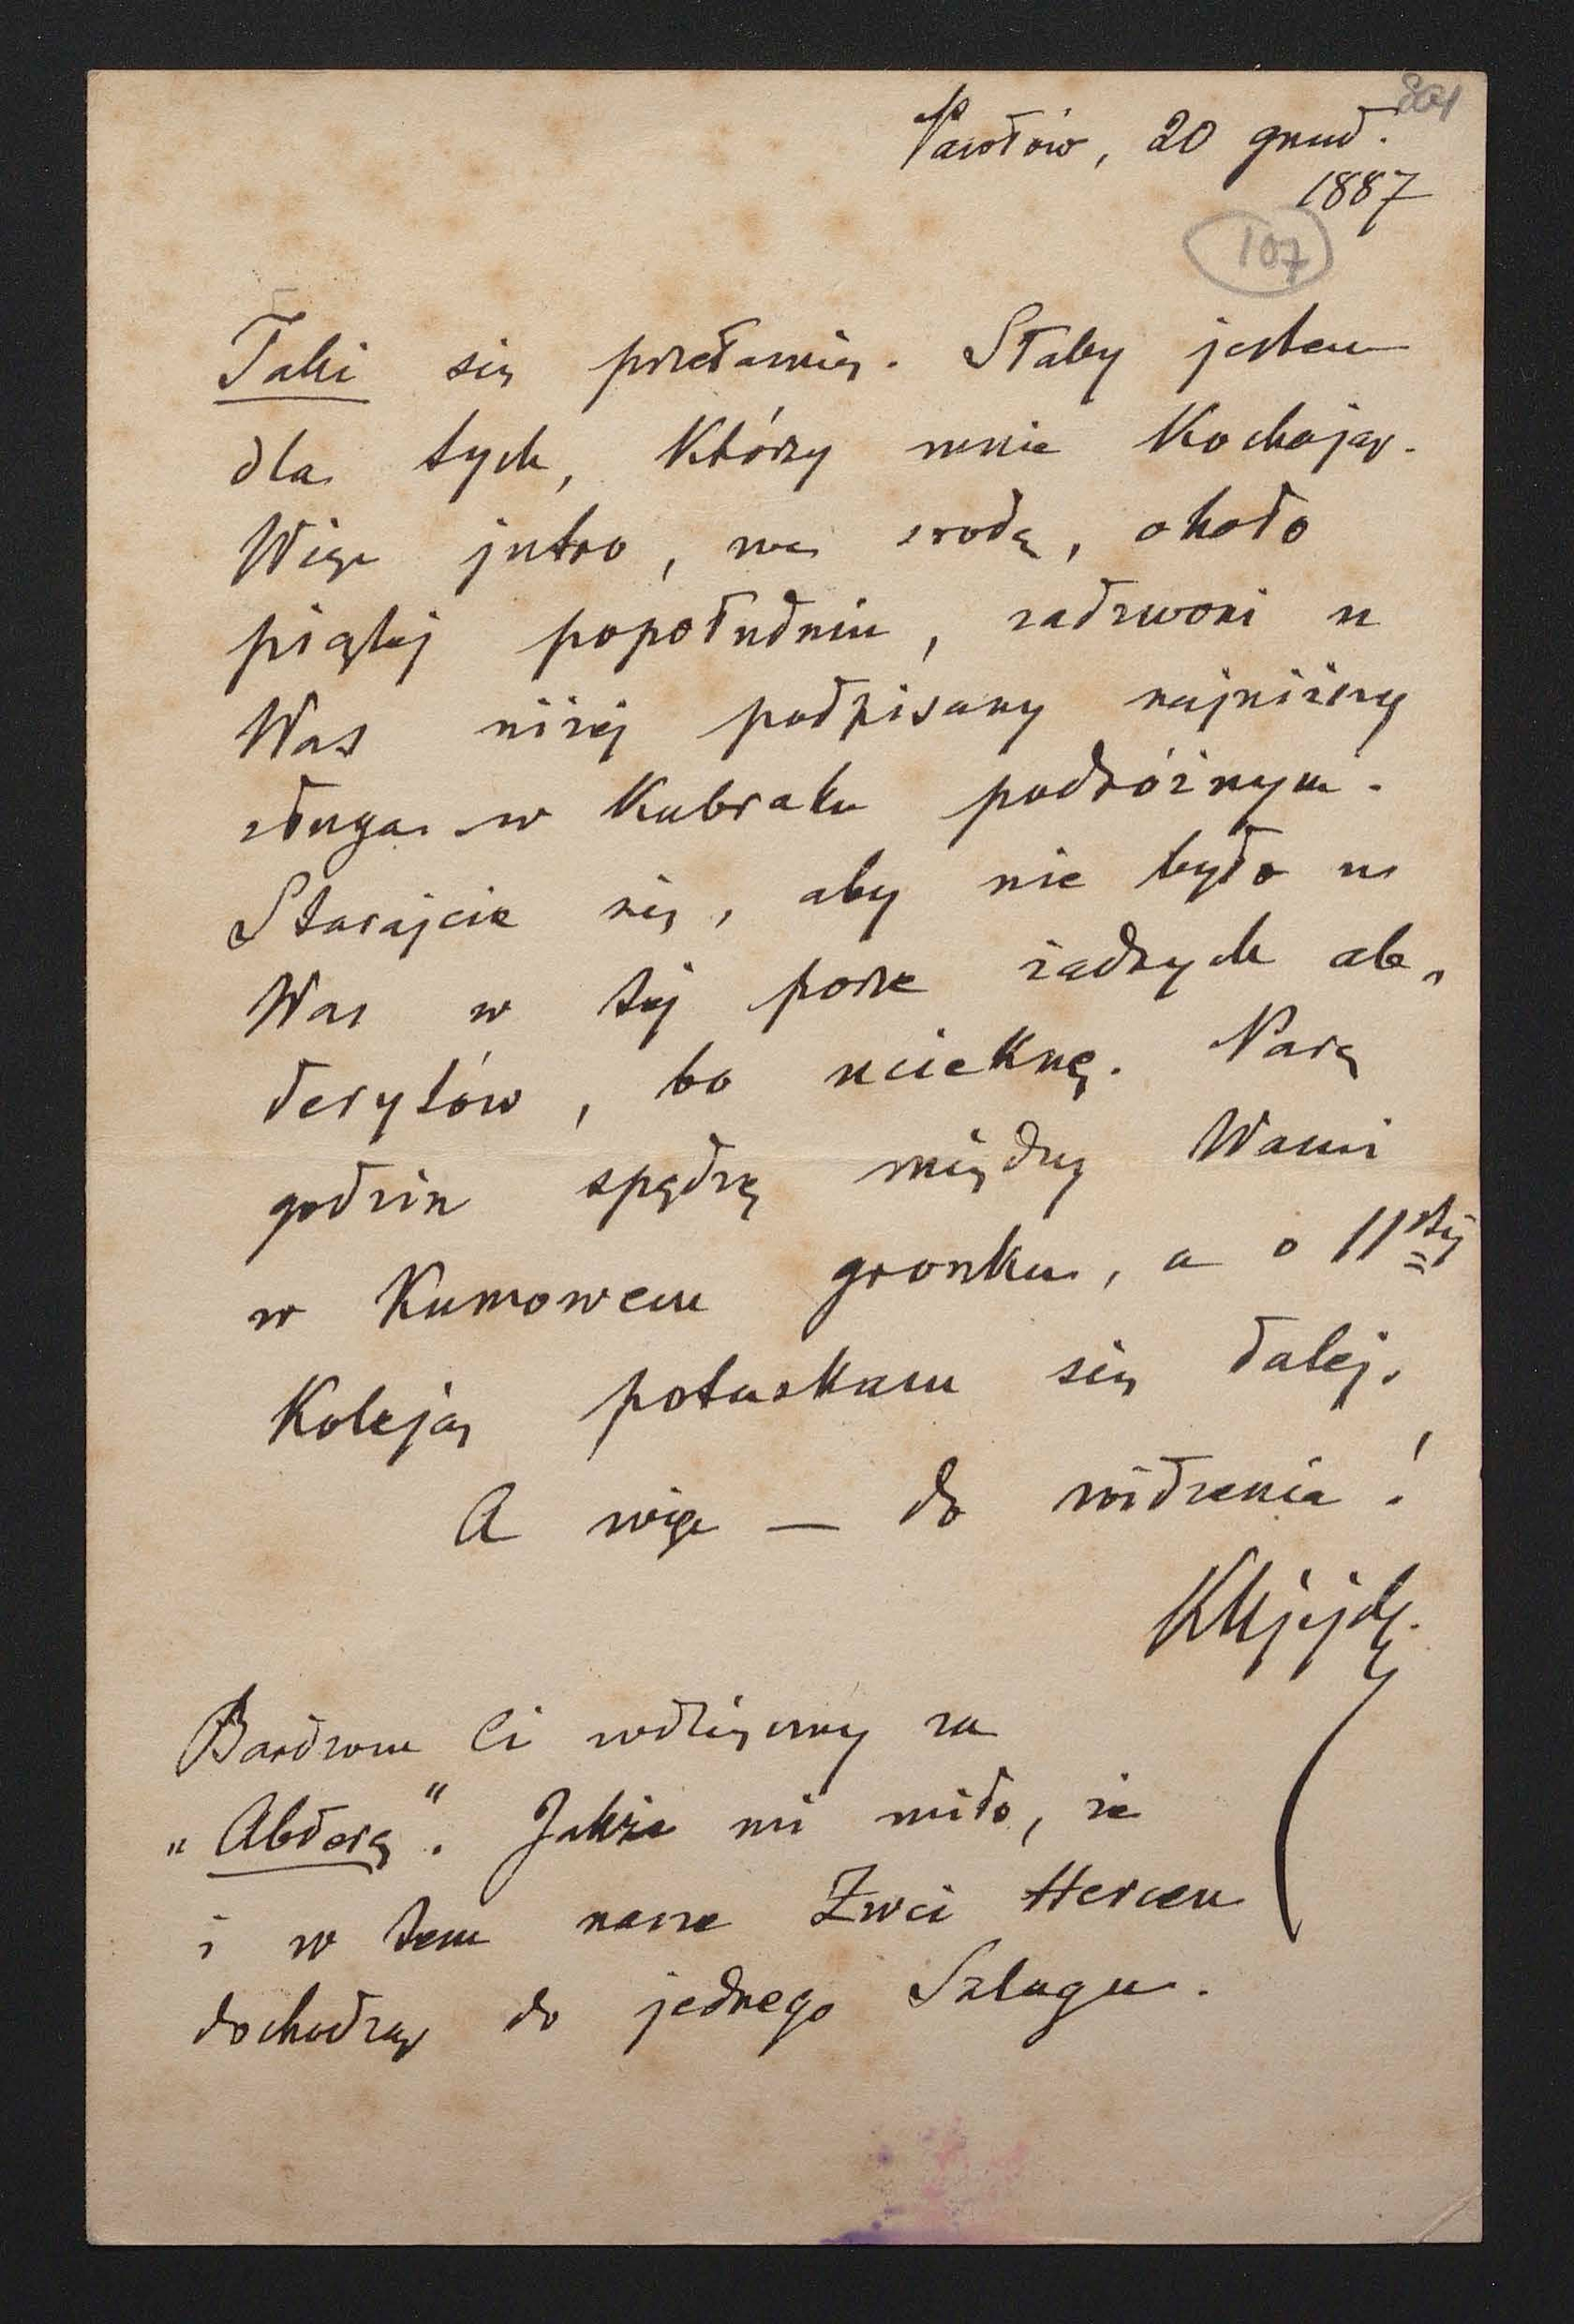 801
Pawłów, 20 grud.
1887
107
Taki się przełamię. Słaby jestem
dla tych, którzy mnie kochają.
Więc jutro, we środę, około
piątej popołudniu, zadzwoni u
Was niżej podpisany najniższy
sługa w kubraku podróżnym.
Starajcie się, aby nie było u
Was w tej porze żadnych ab„
derytów, bo ucieknę. Parę
godzin spędzę między Wami
w Kumowem gronku, a o 11stej
Koleją potaskam się dalej.
A więc — do widzenia!
Bardzom Ci wdzięczny za
„Abderę“. Jakże mi miło, że
i w tem nasze Zwei Herzen
dochodzą do jednego Szlagu.